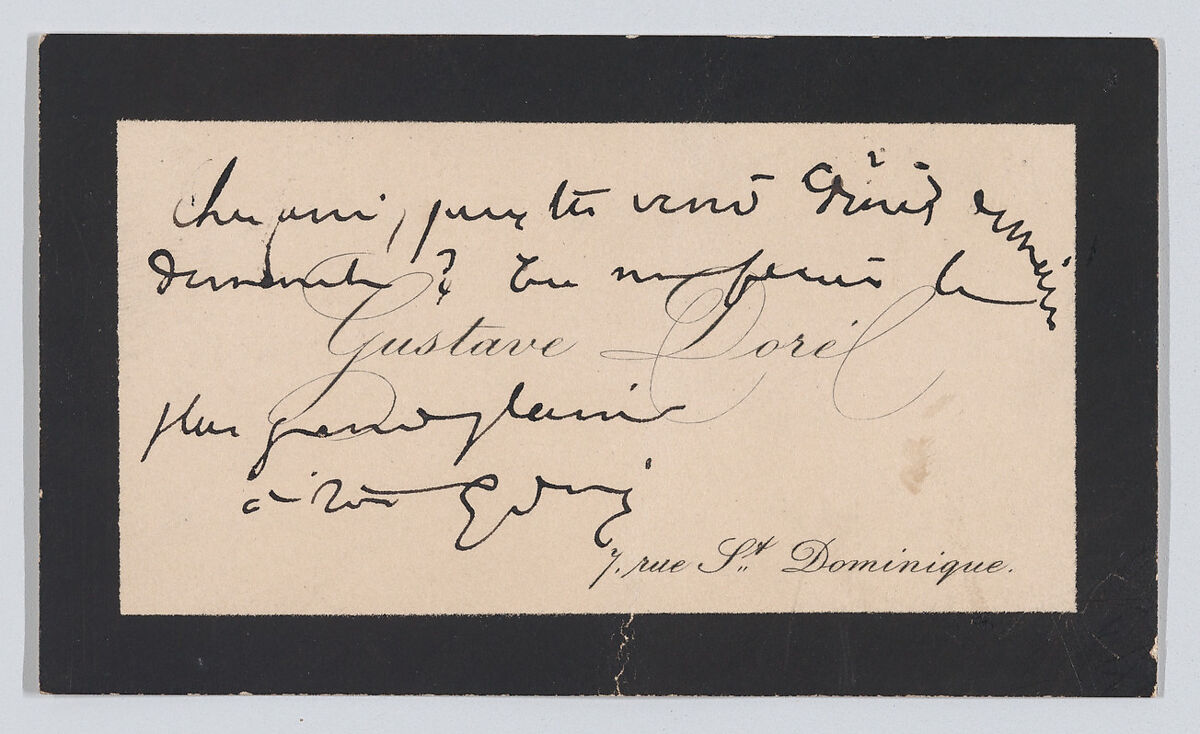 Cher ami, peux tu venir Dîner
Dimanche ? Tu me feras le
Gustave Doré
plus grand plaisir
à toi GDoré
7, rue St. Dominique.